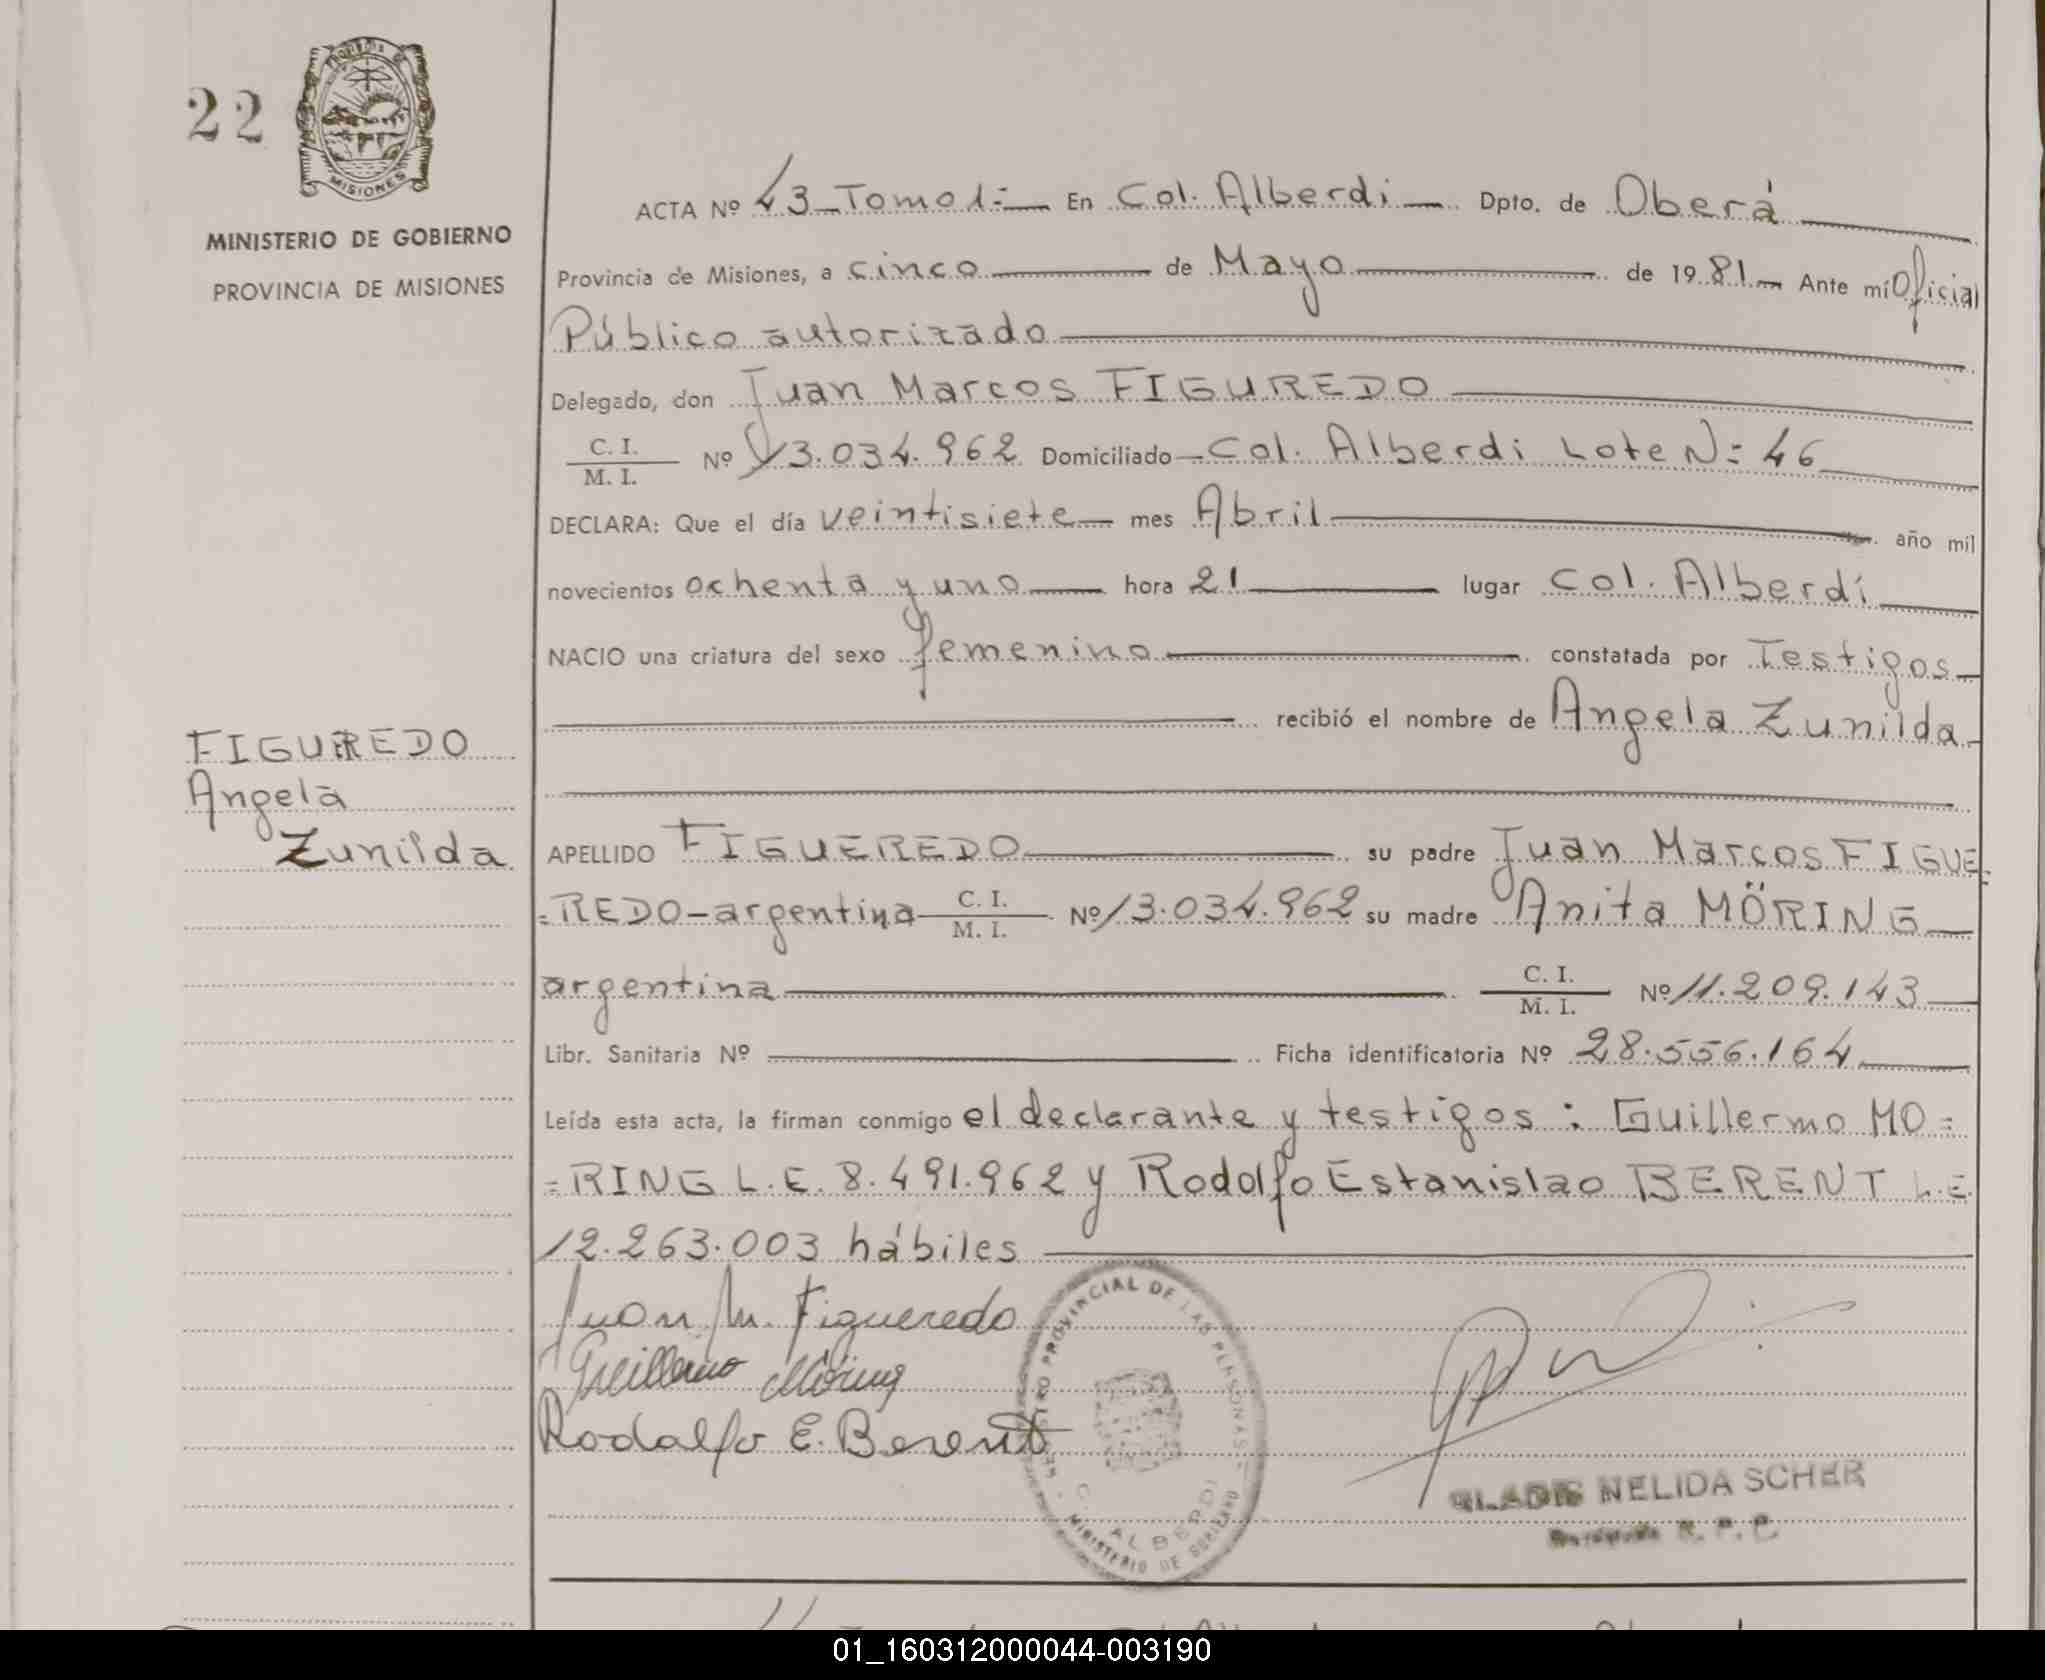 22
MISIONES
MINISTERIO DE GOBIERNO
PROVINCIA DE MISIONES
ACTA Nº 43 Tomo 1: En Col. Alberdi Dpto. de Oberá
Provincia de Misiones, a cinco de Mayo de 1981 Ante mí Oficial
Público autorizado
Delegado, don Juan Marcos FIGUREDO
C. I.
M. I. Nº 13.034.962 Domiciliado Col. Alberdi Lote N: 46
DECLARA: Que el día veintisiete mes Abril año mil
novecientos ochenta y uno hora 21 lugar Col. Alberdi
NACIO una criatura del sexo femenino constatada por Testigos
recibió el nombre de Angela Zunilda
FIGUREDO
Angela
Zunilda
APELLIDO FIGUEREDO su padre Juan Marcos FIGUE=
=REDO-argentina C. I.
M. I. Nº 13.034.962 su madre Anita MÖRING
argentina C. I.
M. I. Nº 11.209.143
Libr. Sanitaria Nº Ficha identificatoria Nº 28.556.164
Leída esta acta, la firman conmigo el declarante y testigos: Guillermo MO=
=RING L.E. 8.491.962 y Rodolfo Estanislao BERENT L.E.
12.263.003 hábiles
Juan M. Figueredo
Guillermo Möring
Rodolfo E. Berent
REGISTRO PROVINCIAL DE LAS PERSONAS
C. ALBERDI
MINISTERIO DE GOBIERNO
GLADIS NELIDA SCHER
R. P. C.
01_160312000044-003190